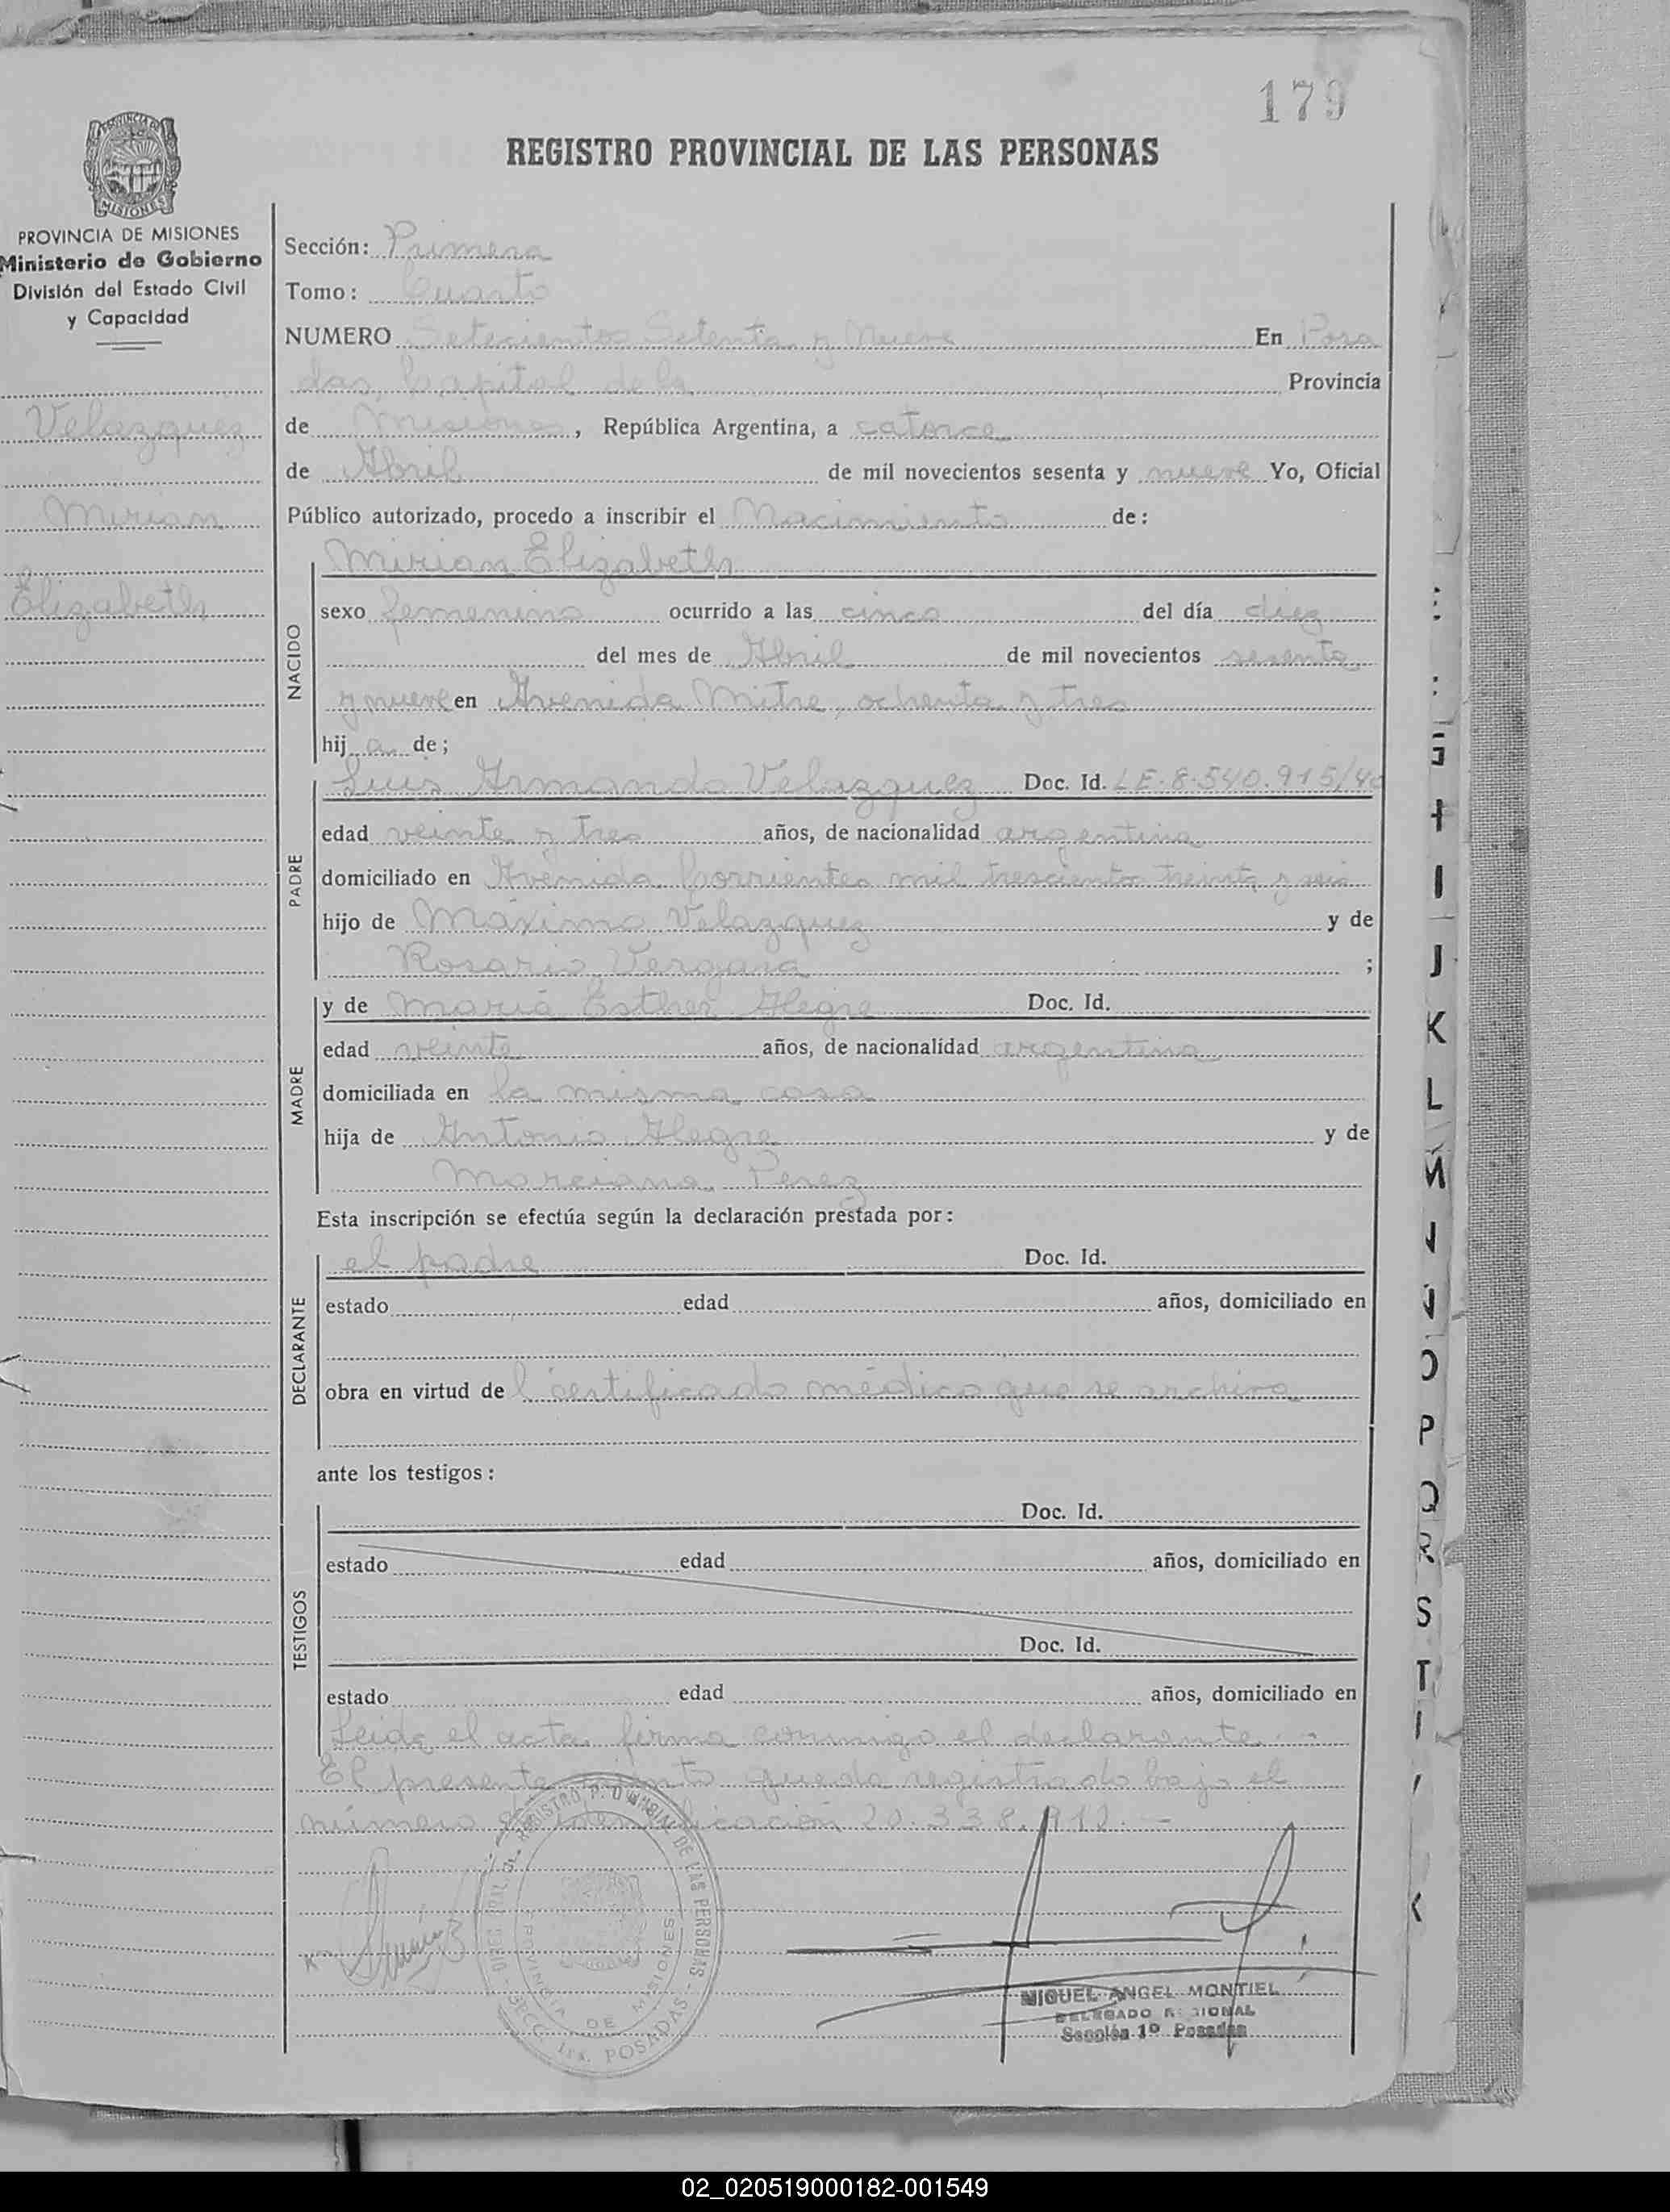 179
REGISTRO PROVINCIAL DE LAS PERSONAS
PROVINCIA DE MISIONES
Ministerio de Gobierno
División del Estado Civil
y Capacidad
Velazquez
Mirian
Elizabeth
Sección: Primera
Tomo: Cuarto
NUMERO Setecientos Setenta y Nueve En Posa
das, Capital de la Provincia
de Misiones, República Argentina, a catorce
de Abril de mil novecientos sesenta y nueve Yo, Oficial
Público autorizado, procedo a inscribir el Nacimiento de:
NACIDO
Mirian Elizabeth
sexo femenino ocurrido a las cinco del día diez
del mes de Abril de mil novecientos sesenta
y nueve en Avenida Mitre, ochenta y tres
hij a de;
PADRE
Luis Armando Velazquez Doc. Id. LE.8.540.915/40
edad veinte y tres años, de nacionalidad argentina
domiciliado en Avenida Corrientes mil trescientos treinta y seis
hijo de Máximo Velazquez y de
Rosario Vergara ;
MADRE
y de María Esther Alegre Doc. Id.
edad veinte años, de nacionalidad argentina
domiciliada en la misma casa
hija de Antonio Alegre y de
Marciana Perez
Esta inscripción se efectúa según la declaración prestada por:
DECLARANTE
el padre Doc. Id.
estado edad años, domiciliado en
obra en virtud de l certificado médico que se archiva
ante los testigos:
TESTIGOS
Doc. Id.
estado edad años, domiciliado en
Doc. Id.
estado edad años, domiciliado en
Leida el acta, firma conmigo el declarante.
El presente queda registrado bajo el
número 20.338.912.-
REGISTRO DE LAS PERSONAS
PROVINCIA DE MISIONES
POSADAS
MIGUEL ANGEL MONTIEL
DELEGADO REGIONAL
Sección 1º Posadas
J
K
L
M
O
P
Q
R
S
T
02_020519000182-001549